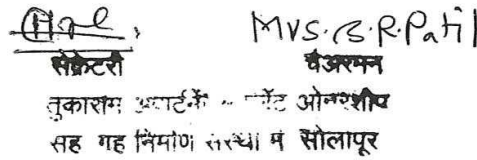 Mrs. B. R. Patil
सेक्रेटरी चेअरमन
तुकाराम ओनरशीप
सह गृह निर्माण संस्था म सोलापूर